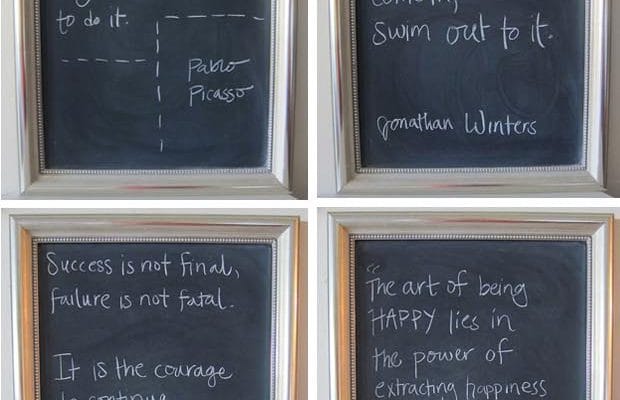 to do it.
Pablo
Picasso
Swim out to it.
Jonathan Winters
Success is not final,
failure is not fatal.
It is the courage
to continue
"The art of being
HAPPY lies in
the power of
extracting happiness